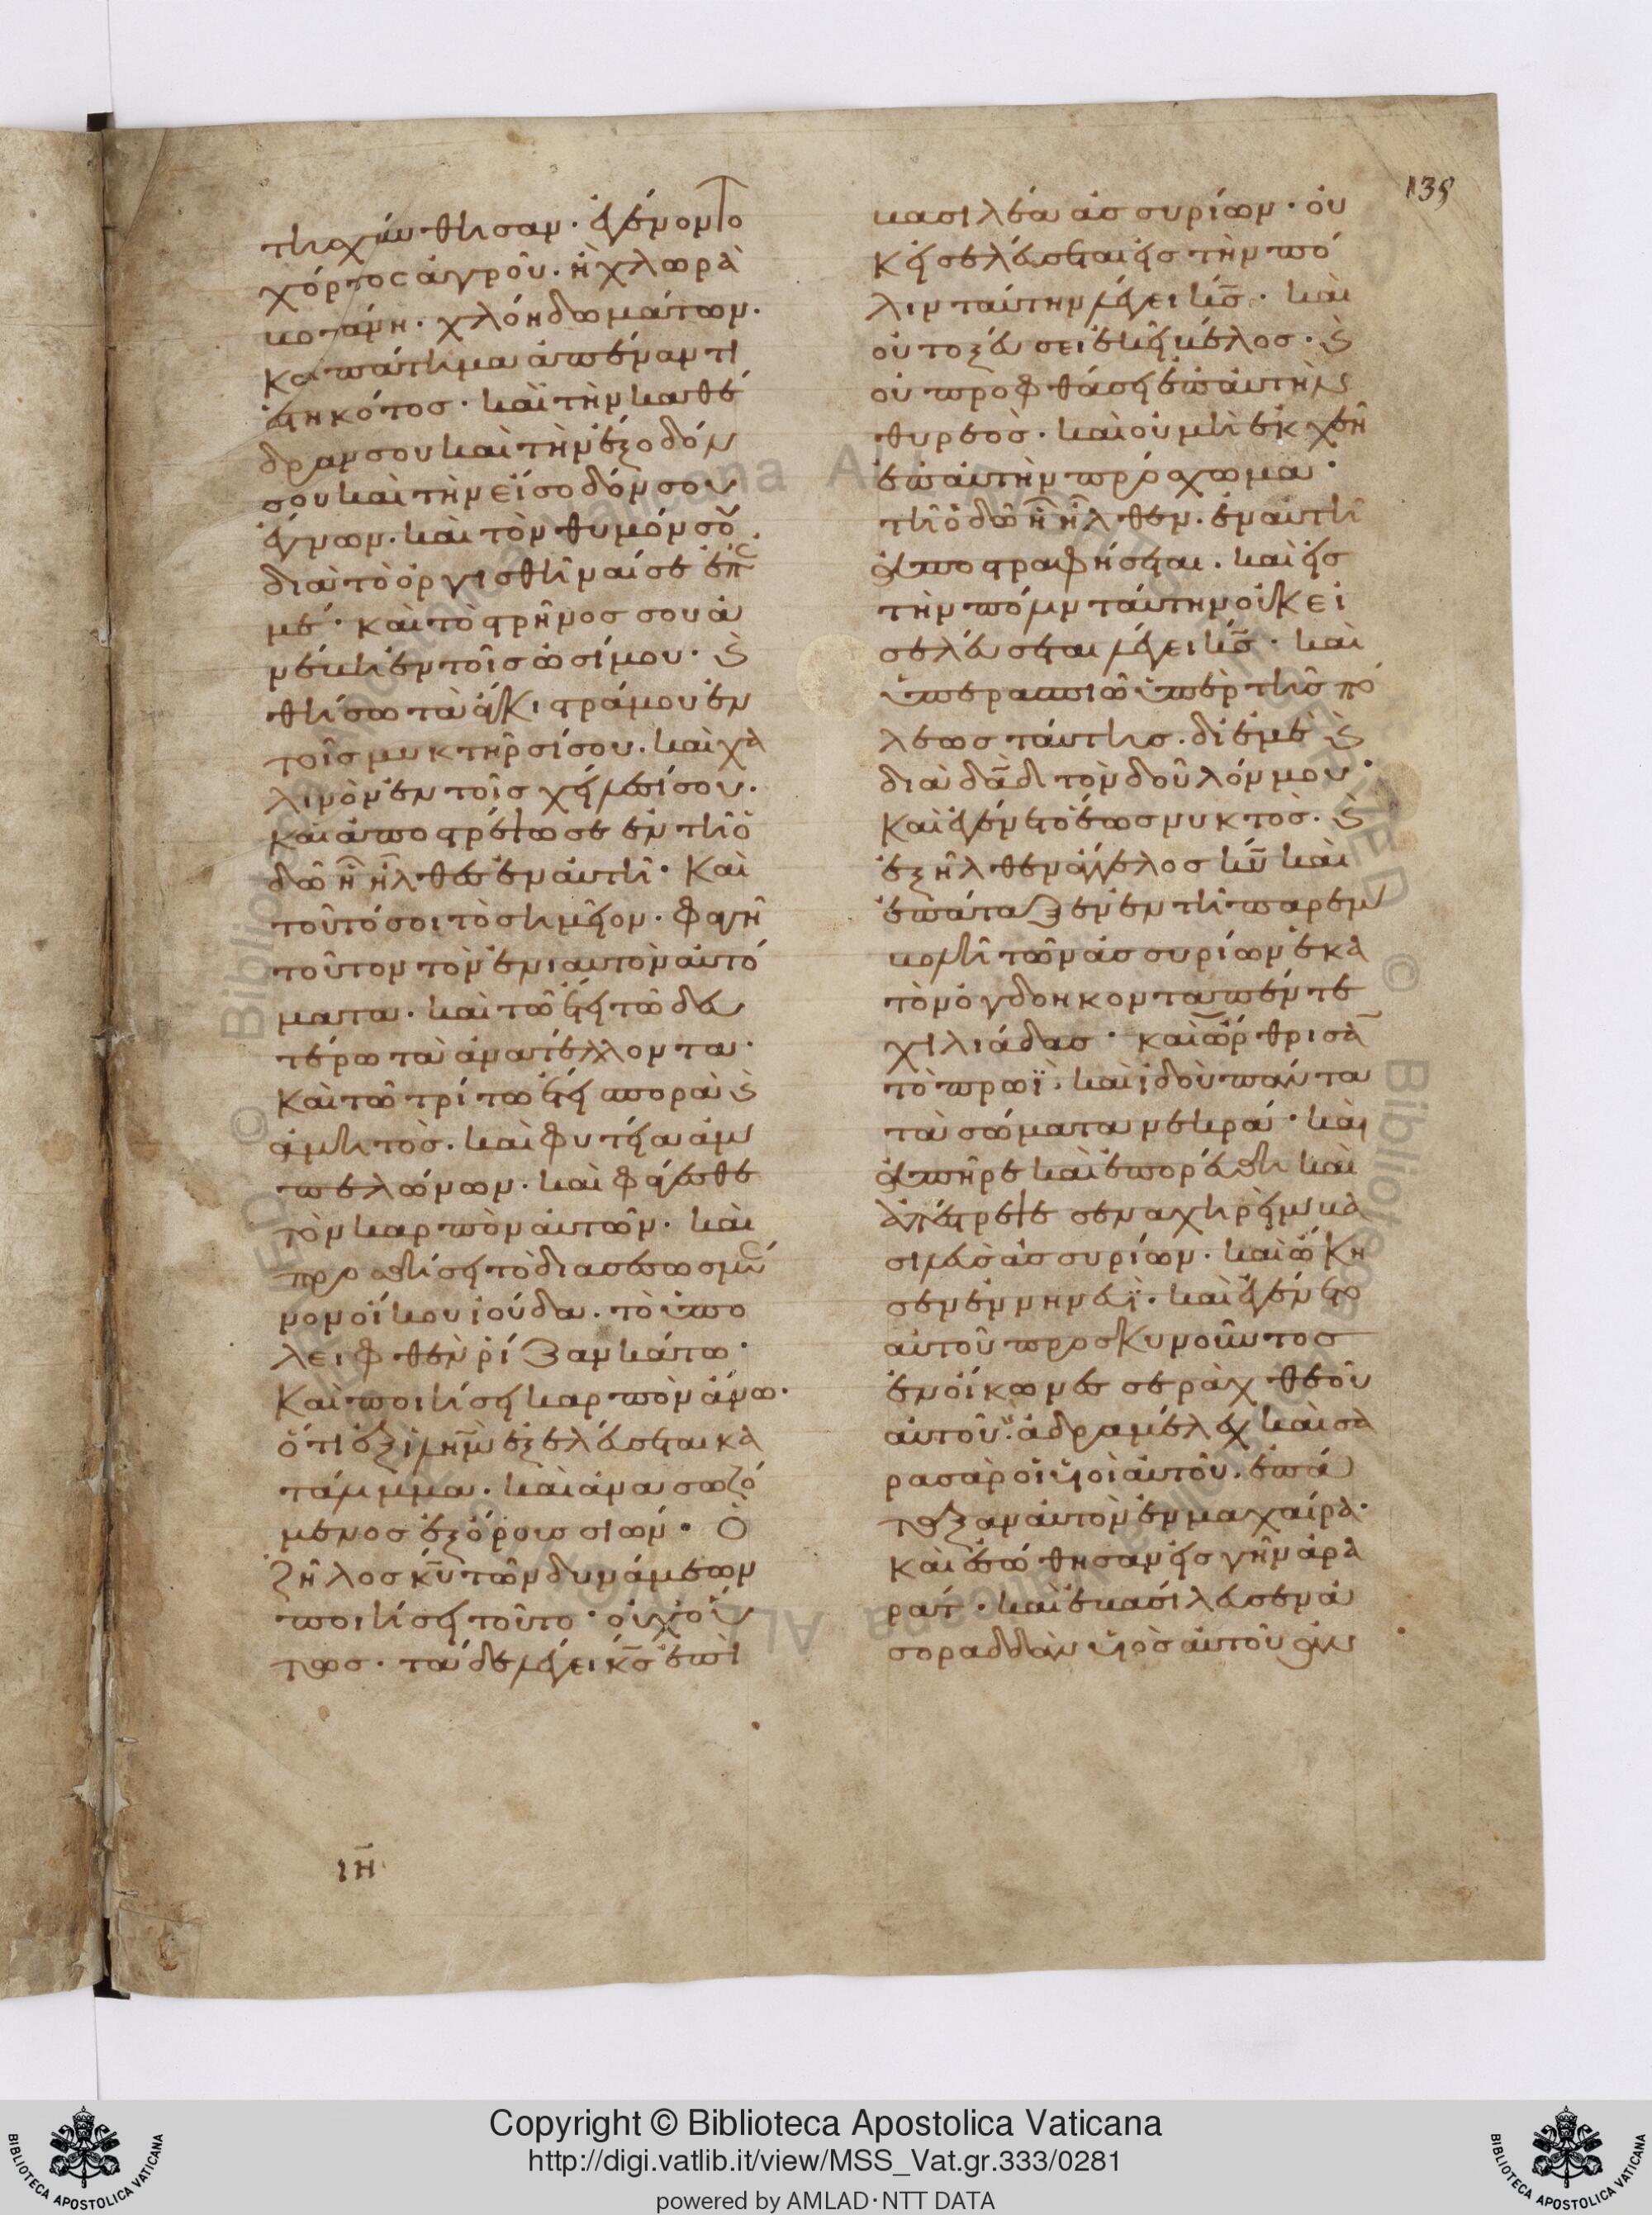 135
τηισχύνθησαν· ἐγένοντο
χόρτος ἀγροῦ. ἢ χλωρὰ
βοτάνη. χλόη δωμάτων.
καὶ πάτημα ἀπέναντι
ἑστηκότος. καὶ τὴν καθέ
δραν σου καὶ τὴν ἔξοδόν
σου καὶ τὴν εἴσοδόν σου
ἔγνων. καὶ τὸν θυμόν σου.
διὰ τὸ ὀργισθῆναί σε ἐπ
ἐμέ· καὶ τὸ στρῆνος σου ἀ
νέβη ἐν τοῖς ὠσί μου· καὶ
θήσω τὰ ἄγκιστρά μου ἐν
τοῖς μυκτῆρσί σου. καὶ χα
λινὸν ἐν τοῖς χείλεσί σου.
καὶ ἀποστρέψω σε ἐν τῆ ὁ
δῶ ἧ ἦλθες ἐν αὐτῆ· καὶ
τοῦτό σοι τὸ σημεῖον. φαγῆ
τοῦτον τὸν ἐνιαυτὸν αὐτό
ματα. καὶ τῶ ἔτει τῶ δευ
τέρω τὰ ἀνατέλλοντα·
καὶ τῶ τρίτω ἔτει σπορὰ καὶ
ἄμητος. καὶ φυτεία ἀμ
πελώνων. καὶ φάγεσθε
τὸν καρπὸν αὐτῶν. καὶ
προσθήσει τὸ διασεσωσμέ
νον οἴκου ἰούδα. τὸ ὑπο
λειφθὲν ῥίζαν κάτω·
καὶ ποιήσει καρπὸν ἄνω·
ὅτι ἐξ ἰλημ ἐξελεύσεται κα
τάλιμμα. καὶ ἀνασωζό
μενος ἐξ ὄρους σιών· Ὁ
ζῆλος κυ τῶν δυνάμεων
ποιήσει τοῦτο· οὐχ οὕ
τως· τάδε λέγει κς ἐπὶ
ιη
βασιλέα ἀσσυρίων· οὐ
κ εἰσελεύσεται εἰς τὴν πό
λιν ταύτην λέγει κς. καὶ
οὐ τοξεύσει ἐκεῖ βέλος· καὶ
οὐ προφθάσει ἐπ αὐτὴν
θυρεὸς. καὶ οὐ μὴ ἐκχεῆ
ἐπ αὐτὴν πρόχωμα·
τῆ ὁδῶ ἧ ἦλθεν. ἐν αὐτῆ
ἀποστραφήσεται. καὶ εἰς
τὴν πόλιν ταύτην οὐκ εἰ
σελεύσεται λέγει κς. καὶ
ὑπερασπιῶ ὑπὲρ τῆς πό
λεως ταύτης. δι ἐμὲ καὶ
διὰ δαδ τὸν δοῦλόν μου·
καὶ ἐγένετο ἕως νυκτὸς. καὶ
ἐξῆλθεν ἄγγελος κυ καὶ
ἐπάταξεν ἐν τῆ παρεμ
βολῆ τῶν ἀσσυρίων ἑκα
τὸν ὀγδοηκονταπέντε
χιλιάδας· καὶ ὤρθρισαν
τὸ πρωΐ. καὶ ἰδοὺ πάντα
τὰ σώματα νεκρά· καὶ
ἀπῆρε καὶ ἐπορεύθη καὶ
ἀπέστρεψε σεναχηρεὶμ βα
σιλεὺς ἀσσυρίων. καὶ ὤκη
σεν ἐν νηνευΐ. καὶ ἐγένετο
αὐτοῦ προσκυνοῦντος
ἐν οἴκω νεσεράχ θεοῦ
αὐτοῦ· ἀδραμέλεχ καὶ σα
ρασὰρ οἱ υἱοὶ αὐτοῦ. ἐπά
ταξαν αὐτὸν ἐν μαχαίρα·
καὶ ἐσώθησαν εἰς γῆν ἀρα
ράτ· καὶ ἐβασίλευσεν ἀ
σοραδδὰν υἱὸς αὐτοῦ ἀν
Copyright © Biblioteca Apostolica Vaticana
http://digi.vatlib.it/view/MSS_Vat.gr.333/0281
powered by AMLAD·NTT DATA
BIBLIOTECA APOSTOLICA VATICANA
BIBLIOTECA APOSTOLICA VATICANA